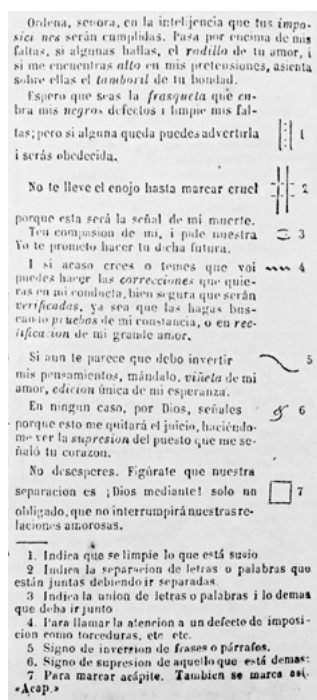 Ordena, señora, en la intelijencia que tus impo-
sici nes serán cumplidas. Pasa por encima de mis
faltas, si algunas hallas, el rodillo de tu amor, i
si me encuentras alto en mis pretensiones, asienta
sobre ellas el tamboril de tu bondad.
Espero que seas la frasqueta que cu-
bra mis negros defectos i limpie mis fal-
tas; pero si alguna queda puedes advertirla 1
i serás obedecida.
No te lleve el enojo hasta marcar cruel 2
porque esta será la señal de mi muerte.
Ten compasion de mi, i pide nuestra 3
Yo te prometo hacer tu dicha futura.
I si acaso crees o temes que voi 4
puedes hacer las correcciones que quie-
ras en mi conducta, bien segura que serán
verificadas, ya sea que las hagas bus-
cando pruebas de mi constancia, o en rec-
tificacion de mi grande amor.
Si aun te parece que debo invertir 5
mis pensamientos, mándalo, viñeta de mi
amor, edicion única de mi esperanza.
En ningun caso, por Dios, señales 6
porque esto me quitará el juicio, haciéndo-
me ver la supresion del puesto que me se-
ñaló tu corazon.
No desesperes. Figúrate que nuestra
separacion es ¡Dios mediante! solo un 7
obligado, que no interrumpirá nuestras re-
laciones amorosas.
1. Indica que se limpie lo que está sucio
2 Indica la separacion de letras o palabras que
están juntas debiendo ir separadas.
3 Indica la union de letras o palabras i lo demas
que deba ir junto
4. Para llamar la atencion a un defecto de imposi-
cion como torceduras, etc etc.
5 Signo de inversion de frases o párrafos.
6. Signo de supresion de aquello que está demas:
7. Para marcar acápite. Tambien se marca así.
«Acap.»